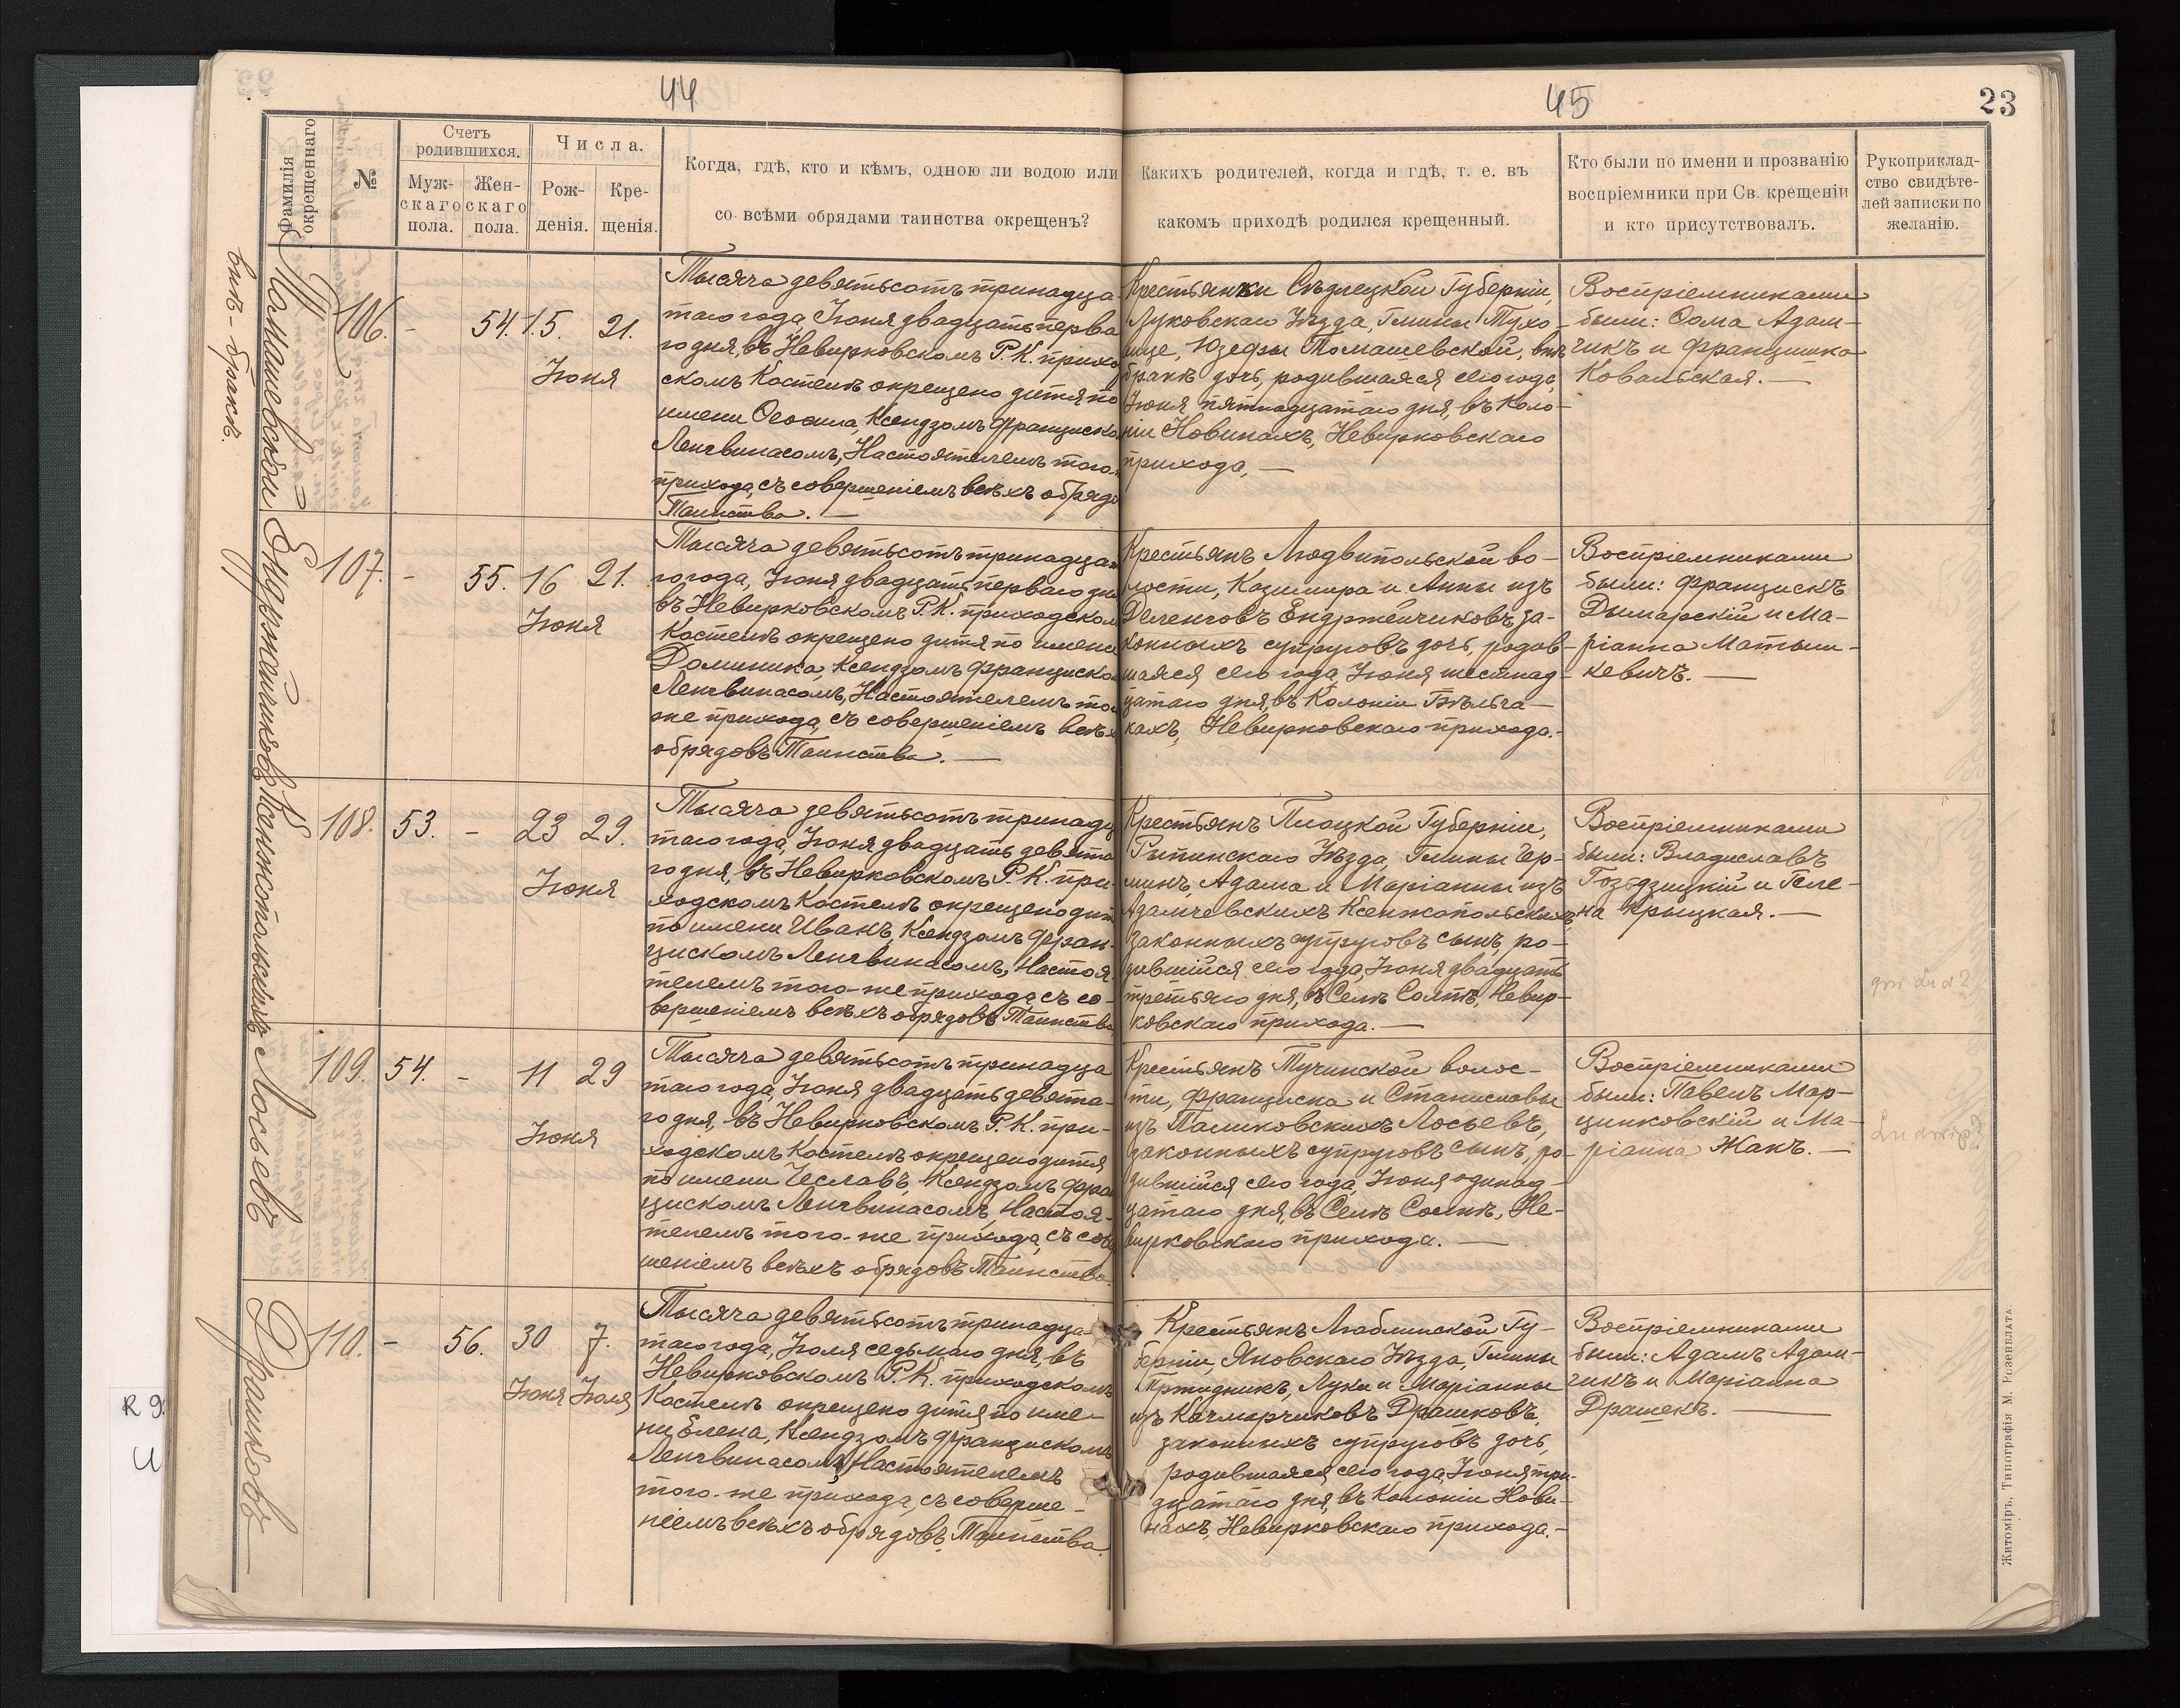 44
45
23
Фамилія окрещеннаго
№
Счетъ родившихся.
Мужскаго пола.
Женскаго пола.
Числа.
Рожденія.
Крещенія.
Когда, гдѣ, кто и кѣмъ, одною ли водою или
со всѣми обрядами таинства окрещенъ?
Какихъ родителей, когда и гдѣ, т. е. въ
какомъ приходѣ родился крещенный.
Кто были по имени и прозванію
воспріемники при Св. крещеніи
и кто присутствовалъ.
Рукоприклад-
ство свидѣте-
лей записки по
желанію.
Томашевской
внѣ-бракѣ.
106.
-
54.
15
Іюня
21.
Тысяча девятьсотъ тринадца-
таго года, Іюня двадцать перва
го дня, въ Невирковскомъ Р. К. прихо
скомъ Костелѣ окрещено дитя по
имени Ѳеофила, Ксендзомъ Франциско
Ленгвинасомъ, Настоятелемъ того-
прихода, съ совершеніемъ всѣхъ обрядо
Таинства. —
Крестьянки Сѣдлецкой Губерніи,
Луковскаго Уѣзда, Гмины Тухо-
вице, Юзефы Томашевской, внѣ
бракѣ дочь, родившаяся сего года,
Іюня пятнадцатаго дня, въ Коло-
ніи Новинахъ, Невирковскаго
прихода, —
Воспріемниками
были: Ѳома Адам-
чикъ и Францишка
Ковальская. —
Ендржейчиковъ
107.
-
55.
16
Іюня
21.
Тысяча девятьсотъ тринадцат
го года, Іюня двадцать перваго дня
въ Невирковскомъ Р. К. приходском
Костелѣ окрещено дитя по имени
Доминика, Ксендзомъ Франциско
Ленгвинасомъ, Настоятелемъ то
же прихода, съ совершеніемъ всѣх
обрядовъ Таинства. —
Крестьянъ Людвипольской во-
лости, Казимира и Анны изъ
Деленговъ Ендржейчиковъ за-
конныхъ супруговъ дочь, родив-
шаяся сего года, Іюня шестнад-
цатаго дня, въ Колоніи Бѣльча-
кахъ, Невирковскаго прихода.-
Воспріемниками
были: Францискъ
Дымарскій и Ма-
ріанна Матыш-
кевичъ. —
Ксенжопольскихъ
108.
53.
-
23
Іюня
29.
Тысяча девятьсотъ тринадц
таго года, Іюня двадцать девята
го дня, въ Невирковскомъ Р. К. при-
ходскомъ Костелѣ окрещено дит
по имени Иванъ, Ксендзомъ Фран-
цискомъ Ленгвинасомъ, Настоя-
телемъ того-же прихода, съ со-
вершеніемъ всѣхъ обрядовъ Таинства
Крестьянъ Плоцкой Губерніи,
Рыпинскаго Уѣзда, Гмины Чер-
минъ, Адама и Маріанны изъ
Адамчевскихъ Ксенжопольскихъ
законныхъ супруговъ сынъ, ро-
дившійся сего года, Іюня двадцать
третьяго дня, въ Селѣ Солпѣ, Невир-
ковскаго прихода. —
Воспріемниками
были: Владиславъ
Гозьдзицкій и Геле-
на Крыцкая. —
Лосьевъ
109.
54.
-
11
Іюня
29
Тысяча девятьсотъ тринадца
таго года, Іюня двадцать девята-
го дня, въ Невирковскомъ Р. К. при-
ходскомъ Костелѣ окрещено дитя
по имени Чеславъ, Ксендзомъ Фра
цискомъ Ленгвинасомъ, Настоя-
телемъ того-же прихода, съ сове
шеніемъ всѣхъ обрядовъ Таинства.
Крестьянъ Тучинской волос-
ти, Франциска и Станиславы
изъ Паликовскихъ Лосьевъ,
законныхъ супруговъ сынъ, ро-
дившійся сего года, Іюня одинад-
цатаго дня, въ Селѣ Солпѣ, Не-
вирковскаго прихода. —
Воспріемниками
были: Павелъ Мар-
цинковскій и Ма-
ріанна Жакъ. —
Драшковъ
110.
-
56.
30
Іюня
7.
Іюля
Тысяча девятьсотъ тринадца-
таго года, Іюля седьмаго дня, въ
Невирковскомъ Р. К. приходскомъ
Костелѣ окрещено дитя по име-
ни Елена, Ксендзомъ Францискомъ
Ленгвинасомъ, Настоятелемъ
того-же прихода, съ соверше-
ніемъ всѣхъ обрядовъ Таинства.
Крестьянъ Люблинской Гу-
берніи, Яновскаго Уѣзда, Гмины
Тртидникъ, Луки и Маріанны
изъ Качмарчиковъ Драшковъ,
законныхъ супруговъ дочь,
родившаяся сего года, Іюня три-
дцатаго дня, въ Колоніи Нови-
нахъ, Невирковскаго прихода.-
Воспріемниками
были: Адамъ Адам-
чикъ и Маріанна
Драшекъ. —
Житоміръ, Типографія М. Розенблата
R 9